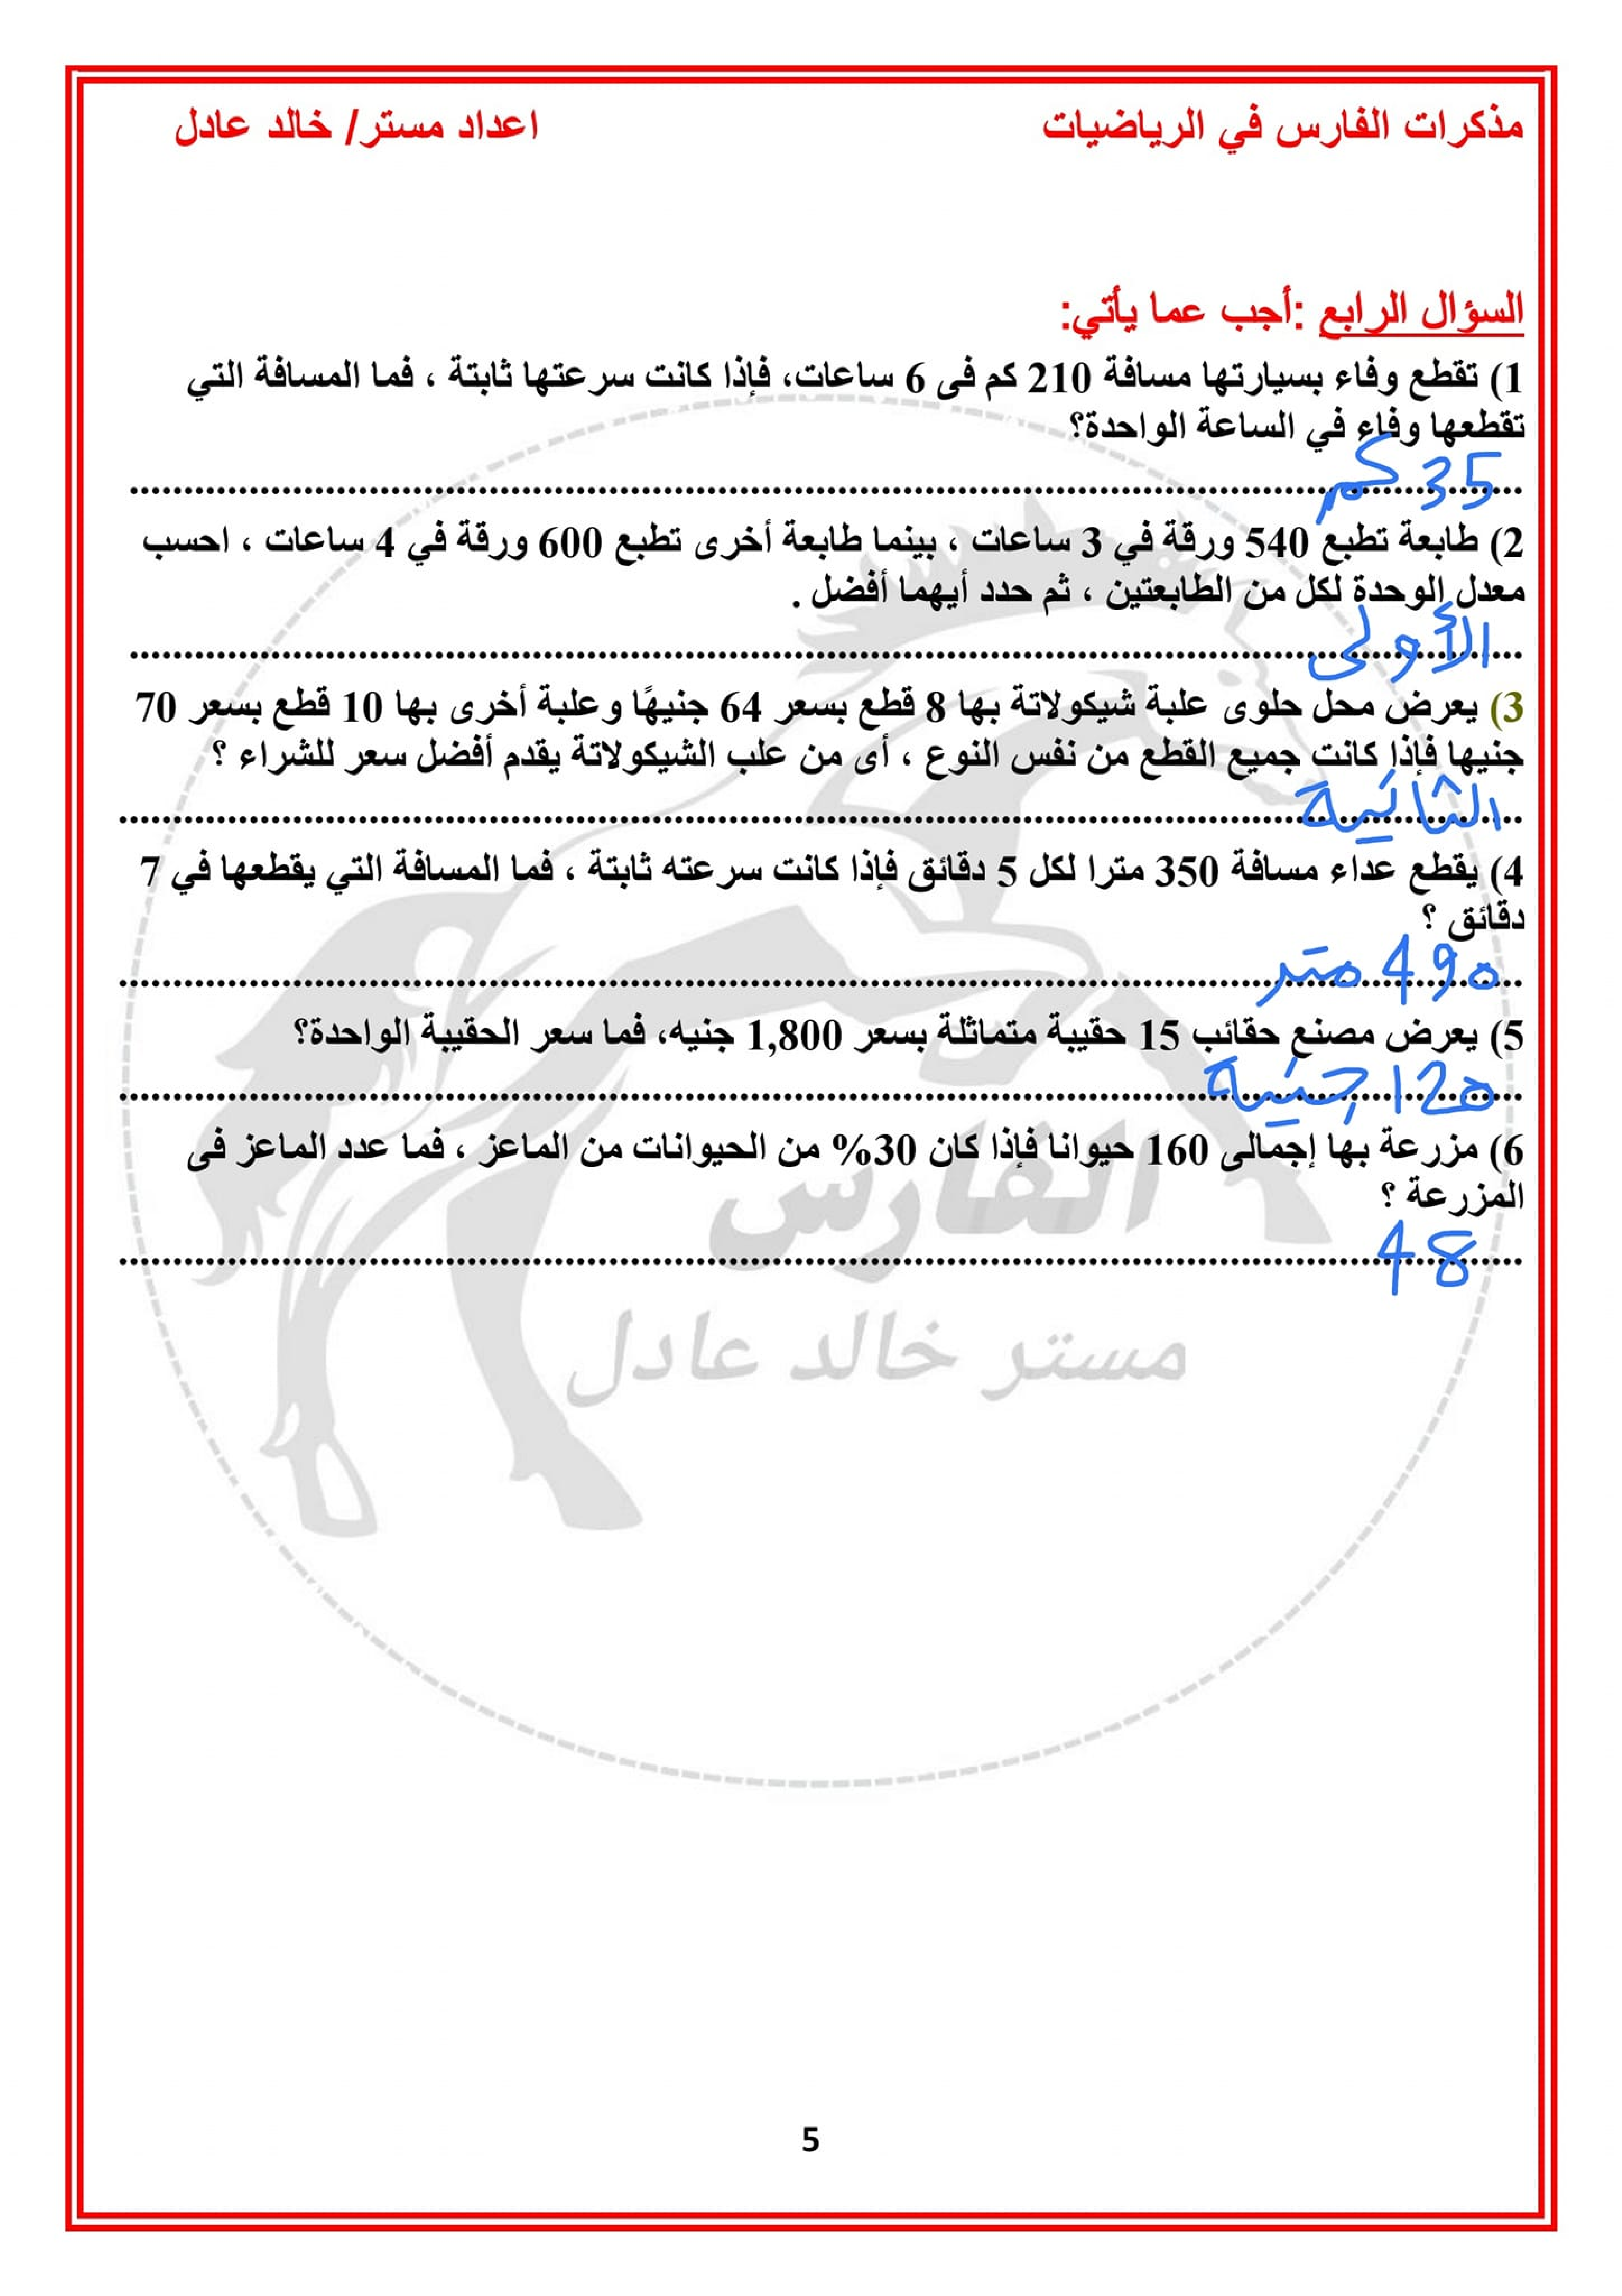 مذكرات الفارس في الرياضيات
اعداد مستر/ خالد عادل
السؤال الرابع :أجب عما يأتي:
1) تقطع وفاء بسيارتها مسافة 210 كم فى 6 ساعات، فإذا كانت سرعتها ثابتة ، فما المسافة التي
تقطعها وفاء في الساعة الواحدة؟
35 كم
2) طابعة تطبع 540 ورقة في 3 ساعات ، بينما طابعة أخرى تطبع 600 ورقة في 4 ساعات ، احسب
معدل الوحدة لكل من الطابعتين ، ثم حدد أيهما أفضل .
الأولى
3) يعرض محل حلوى علبة شيكولاتة بها 8 قطع بسعر 64 جنيهًا وعلبة أخرى بها 10 قطع بسعر 70
جنيها فإذا كانت جميع القطع من نفس النوع ، أى من علب الشيكولاتة يقدم أفضل سعر للشراء ؟
الثانية
4) يقطع عداء مسافة 350 مترا لكل 5 دقائق فإذا كانت سرعته ثابتة ، فما المسافة التي يقطعها في 7
دقائق ؟
490 متر
5) يعرض مصنع حقائب 15 حقيبة متماثلة بسعر 1,800 جنيه، فما سعر الحقيبة الواحدة؟
120 جنية
6) مزرعة بها إجمالى 160 حيوانا فإذا كان 30% من الحيوانات من الماعز ، فما عدد الماعز فى
المزرعة ؟
48
الفارس
مستر خالد عادل
5